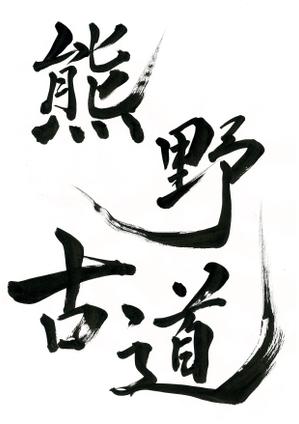 熊野
古道